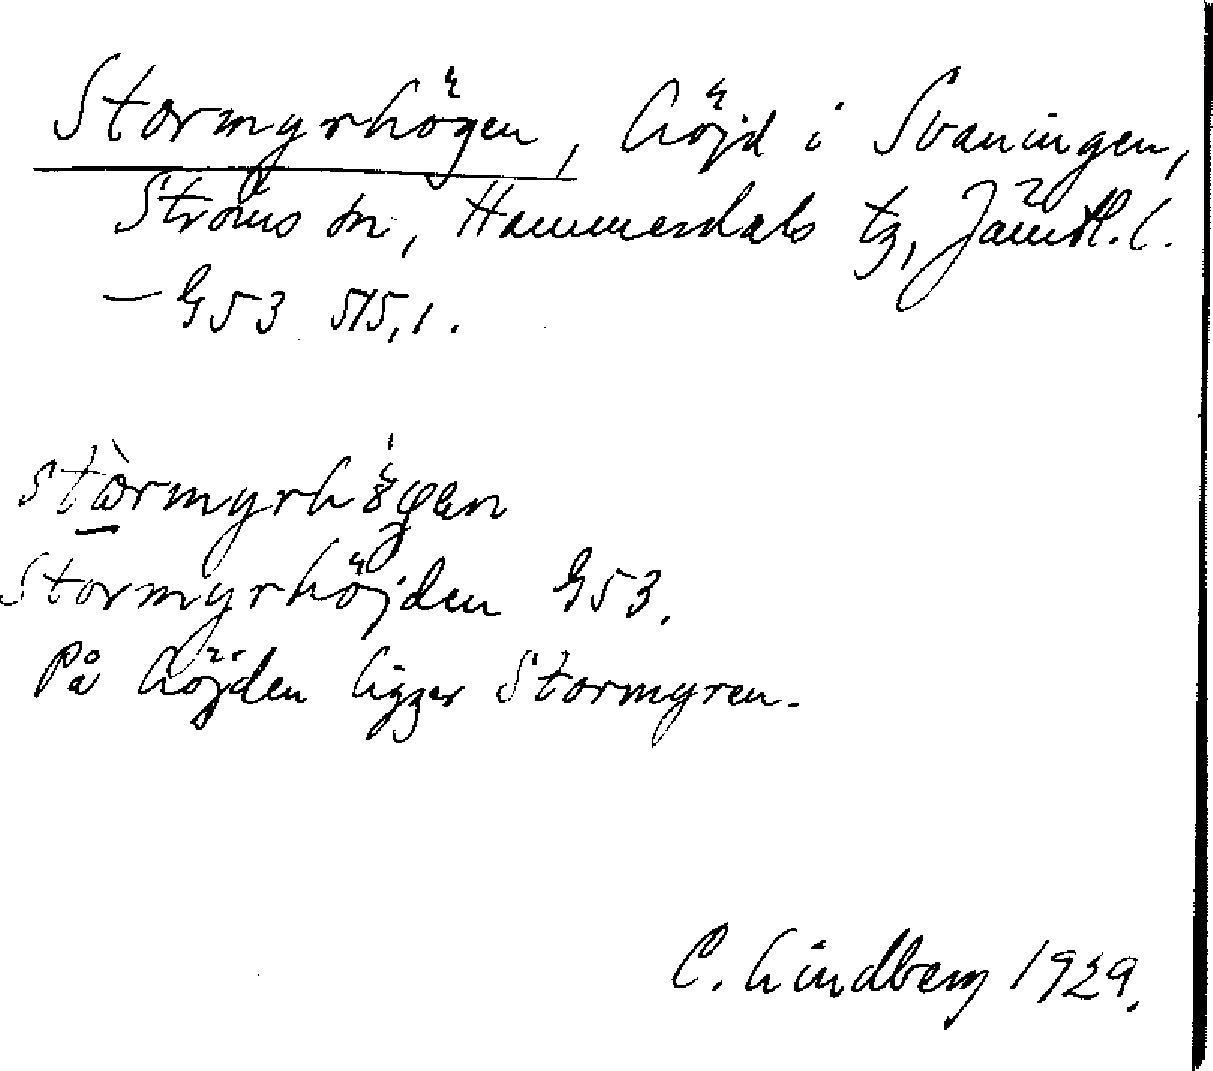 Stormyrhögen, höjd i Svaningen,
Ströms sn, Hammerdals tg, Jämtl. l.
— G53 515,1.
Stormyrhöjden G53.
På höjden ligger Stormyren.
C. Lindberg 1929.